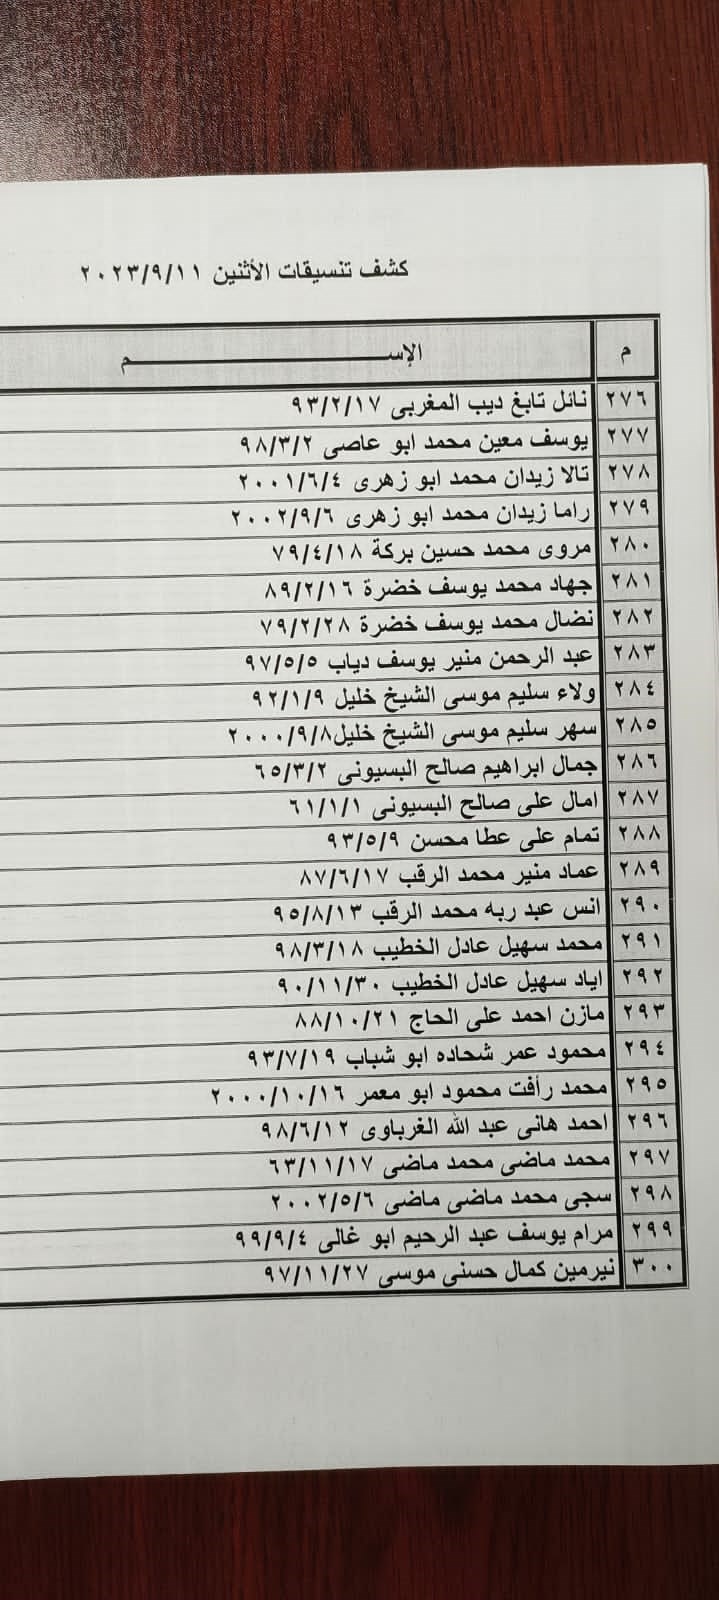 كشف تنسيقات الأثنين ٢٠٢٣/٩/١١
م الإســــــــــم
٢٧٦ نائل تابغ ديب المغربى ٩٣/٢/١٧
٢٧٧ يوسف معين محمد ابو عاصى ٩٨/٣/٢
٢٧٨ تالا زيدان محمد ابو زهرى ٢٠٠١/٦/٤
٢٧٩ راما زيدان محمد ابو زهرى ٢٠٠٢/٩/٦
٢٨٠ مروى محمد حسين بركة ٧٩/٤/١٨
٢٨١ جهاد محمد يوسف خضرة ٨٩/٢/١٦
٢٨٢ نضال محمد يوسف خضرة ٧٩/٢/٢٨
٢٨٣ عبد الرحمن منير يوسف دياب ٩٧/٥/٥
٢٨٤ ولاء سليم موسى الشيخ خليل ٩٢/١/٩
٢٨٥ سهر سليم موسى الشيخ خليل٢٠٠٠/٩/٨
٢٨٦ جمال ابراهيم صالح البسيونى ٦٥/٣/٢
٢٨٧ امال على صالح البسيونى ٦١/١/١
٢٨٨ تمام على عطا محسن ٩٣/٥/٩
٢٨٩ عماد منير محمد الرقب ٨٧/٦/١٧
٢٩٠ انس عبد ربه محمد الرقب ٩٥/٨/١٣
٢٩١ محمد سهيل عادل الخطيب ٩٨/٣/١٨
٢٩٢ اياد سهيل عادل الخطيب ٩٠/١١/٣٠
٢٩٣ مازن احمد على الحاج ٨٨/١٠/٢١
٢٩٤ محمود عمر شحاده ابو شباب ٩٣/٧/١٩
٢٩٥ محمد رأفت محمود ابو معمر ٢٠٠٠/١٠/١٦
٢٩٦ احمد هانى عبد الله الغرباوى ٩٨/٦/١٢
٢٩٧ محمد ماضى محمد ماضى ٦٣/١١/١٧
٢٩٨ سجى محمد ماضى ماضى ٢٠٠٢/٥/٦
٢٩٩ مرام يوسف عبد الرحيم ابو غالى ٩٩/٩/٤
٣٠٠ نيرمين كمال حسنى موسى ٩٧/١١/٢٧